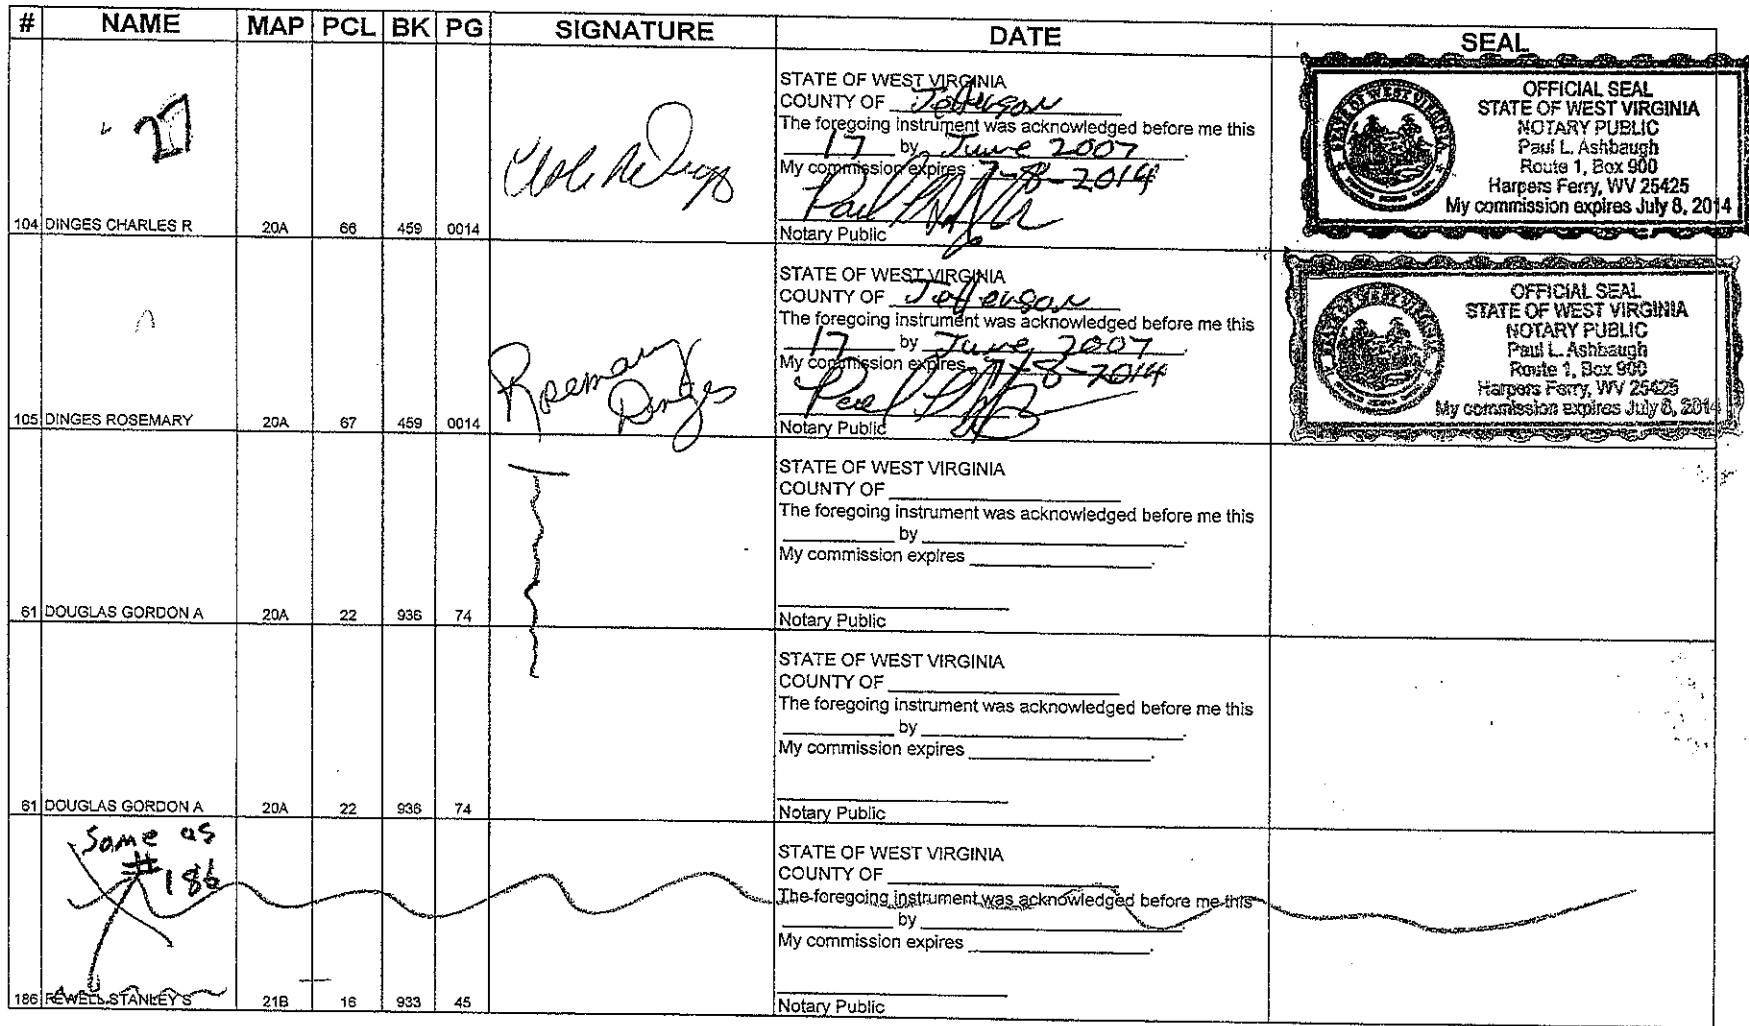 # NAME MAP PCL BK PG SIGNATURE DATE SEAL
27
STATE OF WEST VIRGINIA
COUNTY OF Jefferson
The foregoing instrument was acknowledged before me this
17 by June 2007.
My commission expires 7-8-2014
Notary Public
OFFICIAL SEAL
STATE OF WEST VIRGINIA
NOTARY PUBLIC
Paul L. Ashbaugh
Route 1, Box 900
Harpers Ferry, WV 25425
My commission expires July 8, 2014
104 DINGES CHARLES R 20A 66 459 0014
Rosemary
Dinges
STATE OF WEST VIRGINIA
COUNTY OF Jefferson
The foregoing instrument was acknowledged before me this
17 by June 2007.
My commission expires 7-8-2014
Notary Public
OFFICIAL SEAL
STATE OF WEST VIRGINIA
NOTARY PUBLIC
Paul L. Ashbaugh
Route 1, Box 900
Harpers Ferry, WV 25425
My commission expires July 8, 2014
105 DINGES ROSEMARY 20A 67 459 0014
STATE OF WEST VIRGINIA
COUNTY OF
The foregoing instrument was acknowledged before me this
by .
My commission expires .
Notary Public
61 DOUGLAS GORDON A 20A 22 936 74
STATE OF WEST VIRGINIA
COUNTY OF
The foregoing instrument was acknowledged before me this
by .
My commission expires .
Notary Public
61 DOUGLAS GORDON A 20A 22 936 74
Same as
#186
STATE OF WEST VIRGINIA
COUNTY OF
The foregoing instrument was acknowledged before me this
by .
My commission expires .
Notary Public
186 FEWELL STANLEY S 21B 16 933 45